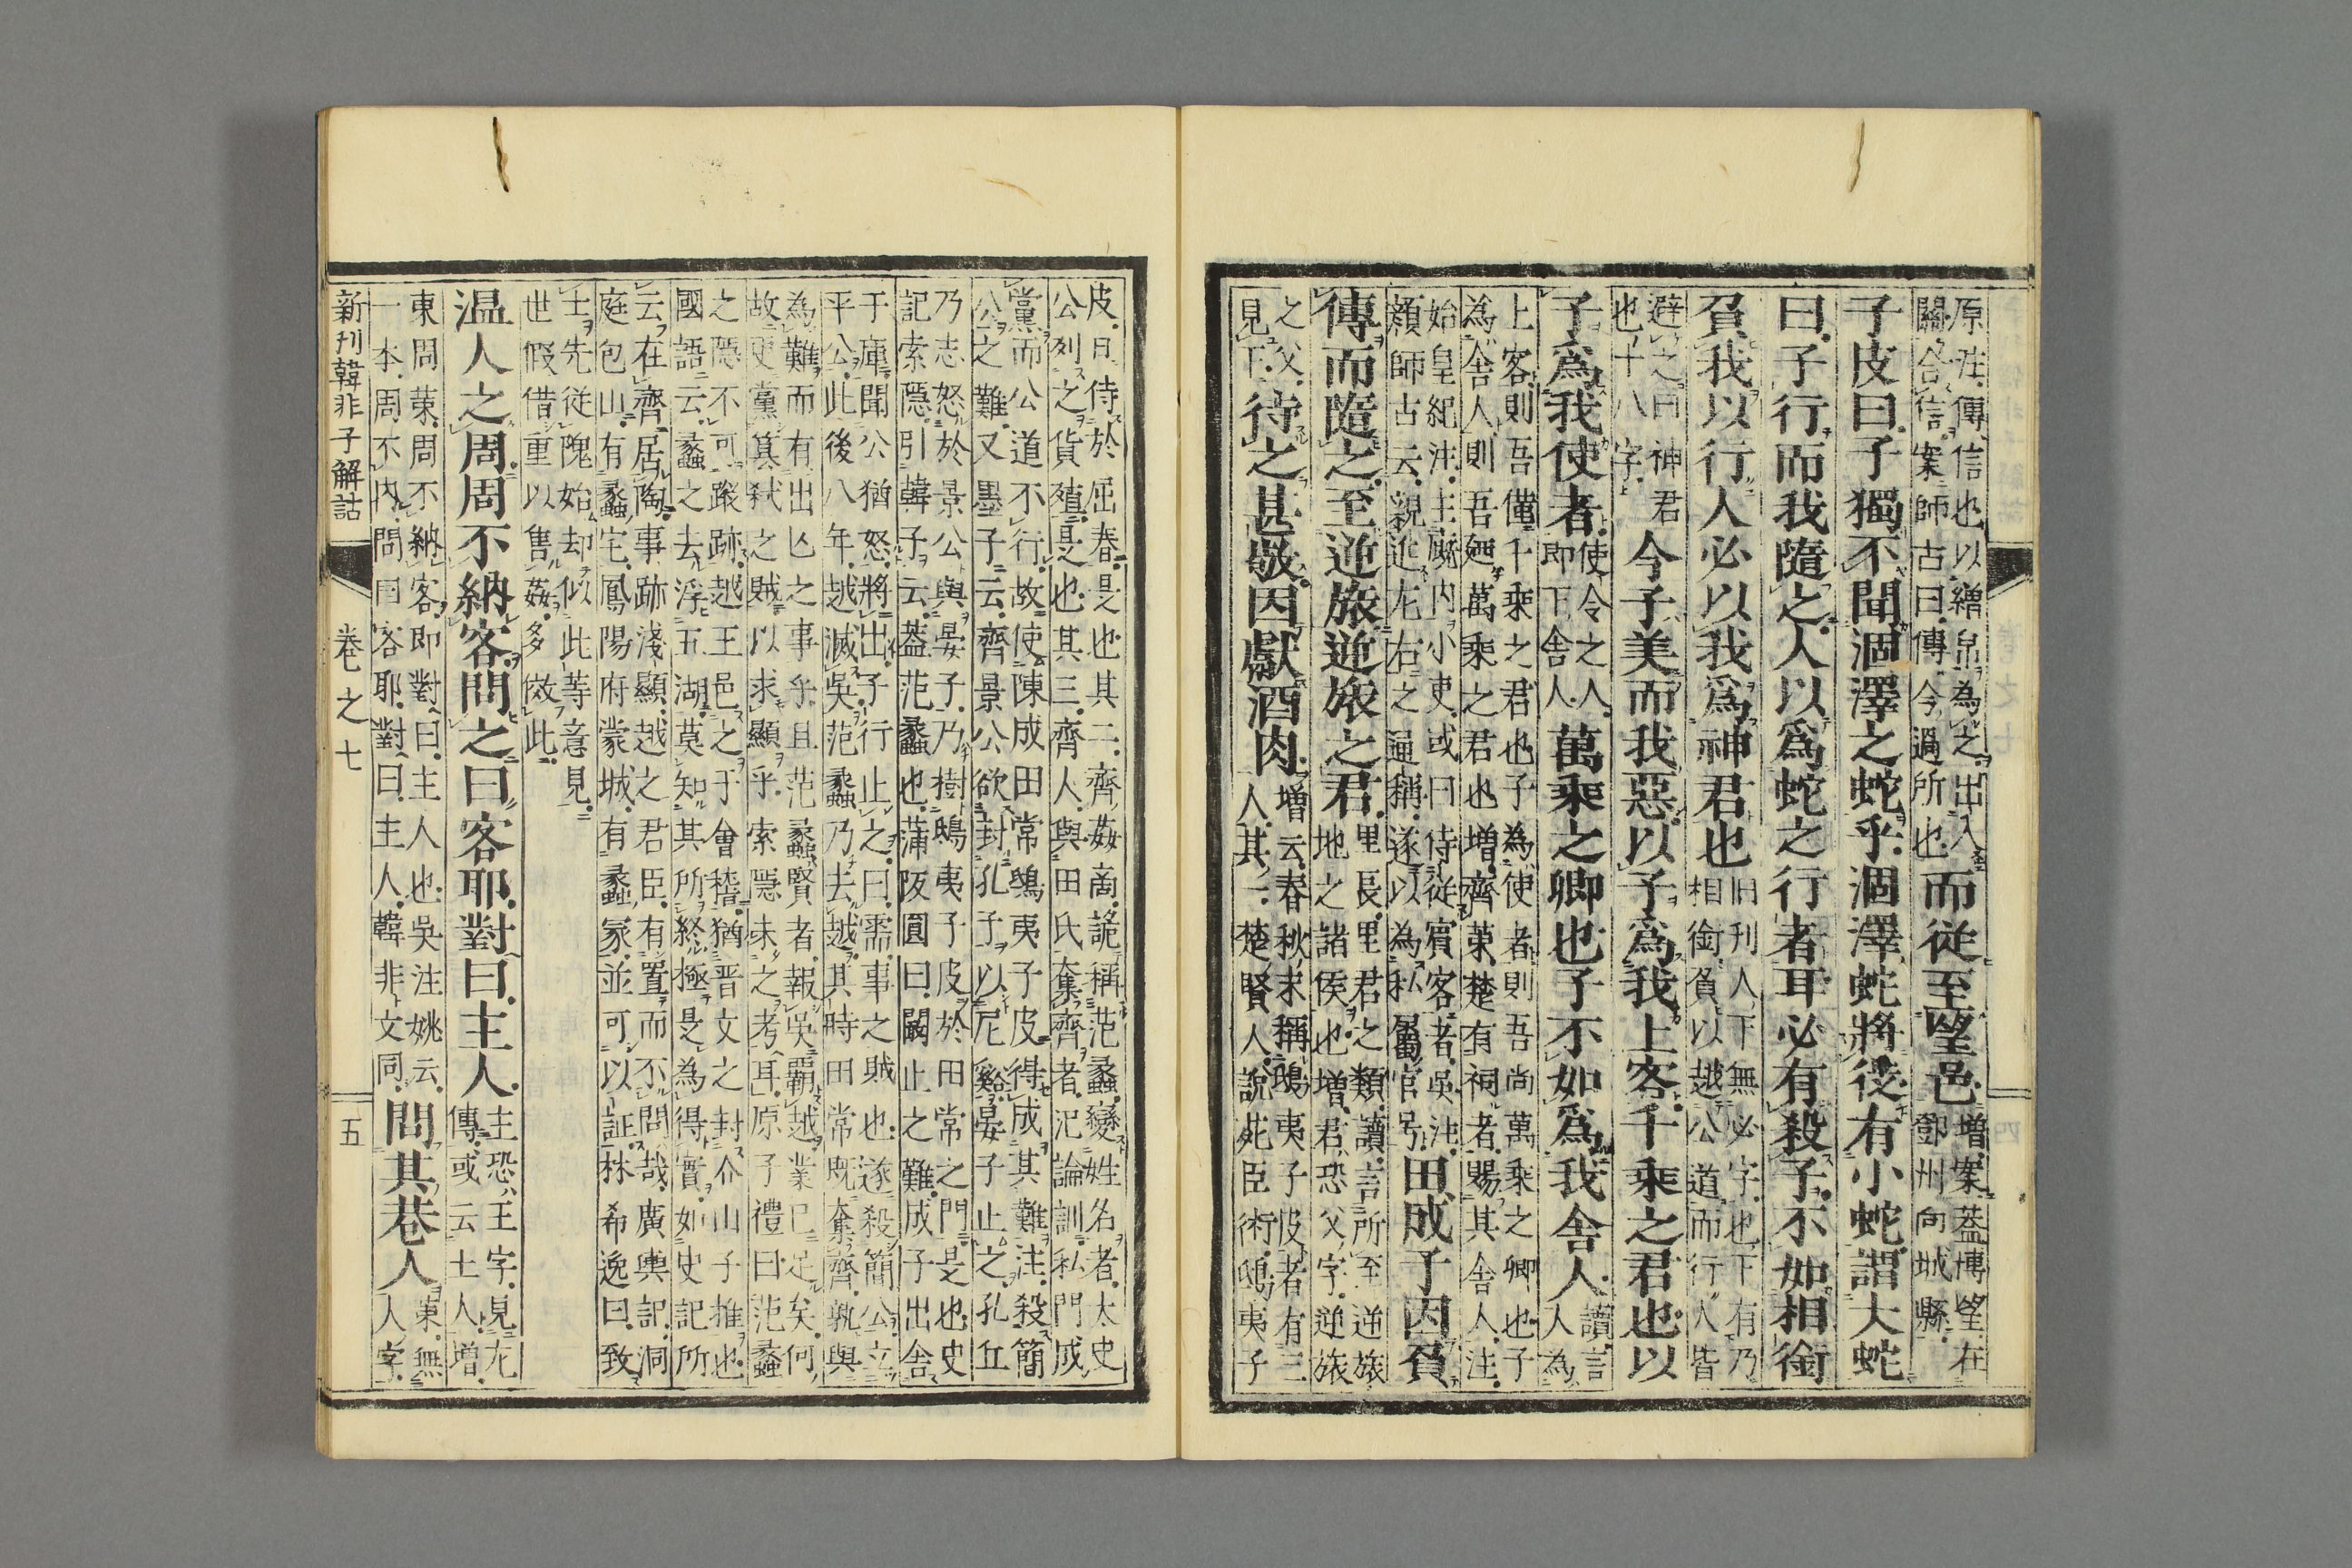 原注、傳、信也、以繒帛為之、出入
關、合信、案師古曰、傳、今過所也、而從至望邑、增、案、蓋博望在
鄧州向城縣、
子皮曰、子獨不聞涸澤之蛇乎、涸澤蛇將徙、有小蛇謂大蛇
曰、子行而我隨之、人以為蛇之行者耳、必有殺子、不如相銜
負我以行、人必以我為神君也、旧刊人下無必字也下有乃
相銜負以越公道而行人皆
避之曰神君
也十八字、今子美而我惡、以子為我上客、千乘之君也、以
子為我使者、使令之人、
即下舍人、萬乘之卿也、子不如為我舍人、讀言
人為
上客、則吾僅千乘之君也、子為使者、則吾尚萬乘之卿也、子
為舍人、則吾廼萬乘之君也、增、齊策、楚有祠者、賜其舍人、注、
始皇紀注、主廐内小吏、或曰侍從賓客者、吳注、
顏師古云、親近左右之通稱、遂以為私屬官号、田成子因負
傳而隨之、至逆旅、逆旅之君、里長、里君之類、讀言所至逆旅
地之諸侯也、增、君恐父字、逆旅
之父、
見下、待之甚敬、因獻酒肉、增云、春秋末稱鴟夷子皮者有三
人、其一、楚賢人、說苑臣術、鴟夷子
皮、日侍於屈春、是也、其二、齊姦商、詭稱范蠡、變姓名者、太史
公列之貨殖是也、其三、齊人、與田氏奪齊者、氾論訓、私門成
黨、而公道不行、故使陳成田常鴟夷子皮得成其難、注、殺簡
公之難、又墨子云、齊景公欲封孔子以尼谿、晏子止之、孔丘
乃志怒於景公與晏子、乃樹鴟夷子皮於田常之門、是也、史
記索隱、引韓子云、蓋范蠡也、蒲阪圓曰、闞止之難、成子出舍
于庫、聞公猶怒、將出、子行止之曰、需、事之賊也、遂殺簡公、立
平公、此後八年、越滅吳、范蠡乃去越、其時田常既奪齊、孰與
為難、而有出亡之事乎、且范蠡賢者、報吳霸越、業已足矣、何
故更黨其弒之賊、以求顯乎、索隱未之考耳、原子禮曰、范蠡
之隱、不可蹤跡、越王邑之于會稽、猶晋文之封介山子推也、
國語云、蠡之去、浮五湖、莫知其所終極、是為得實、如史記所
云、在齊居陶、事跡淺顯、越之君臣、有置而不問哉、廣輿記、洞
庭包山、有蠡宅、鳳陽府蒙城、有蠡冢、並可以証、林希逸曰、致
士、先從隗始、却似此等意見、
世假借重以售姦、多倣此、
温人之周、周不納客、問之曰、客耶、對曰、主人、主恐、王字、見左
傳、或云土人、增、
東周策、周不納客、即對曰、主人也、吳注、姚云、
一本、周不内、問曰客耶、對曰、主人、韓非文同、問其巷人、策、無
人字、
新刊韓非子解詁
卷之七
五